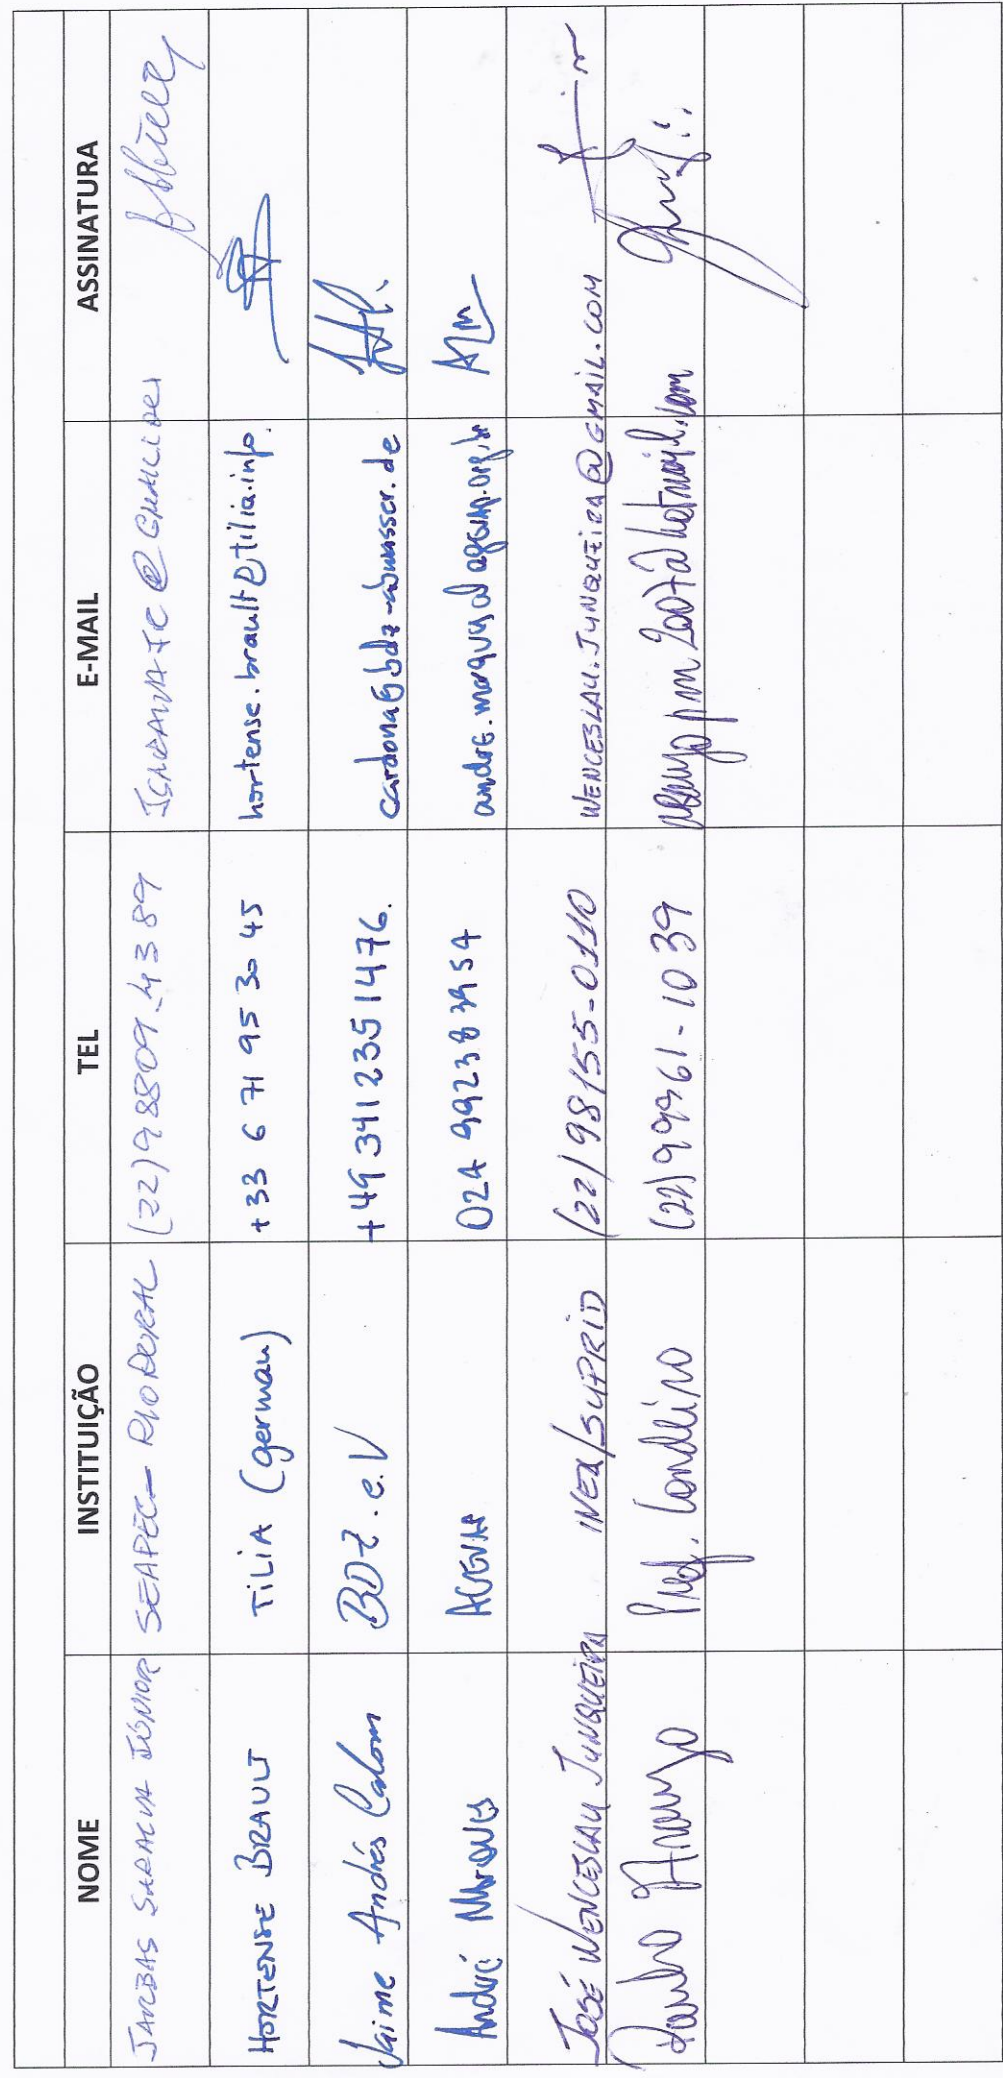 NOME INSTITUIÇÃO TEL E-MAIL ASSINATURA
JARBAS JÚNIOR SEAPEC - RIO RURAL (22) 98809-4389
HORTENSE BRAULT TILIA (german) +33 6 71 95 30 45 hortense.brault@tilia.info.
Jaime Andrés BDZ. e.V +49 341 2351476. cardona@bdz-abwasser.de
André Marques AGEVAP 024 99238 3954 andre.marques@agevap.org.br
JOSÉ WENCESLAU JUNQUEIRA INEA/SUPRID (22) 98155-0110 WENCESLAU.JUNQUEIRA@GMAIL.COM
Araujo Pref. (22) 99961-1039